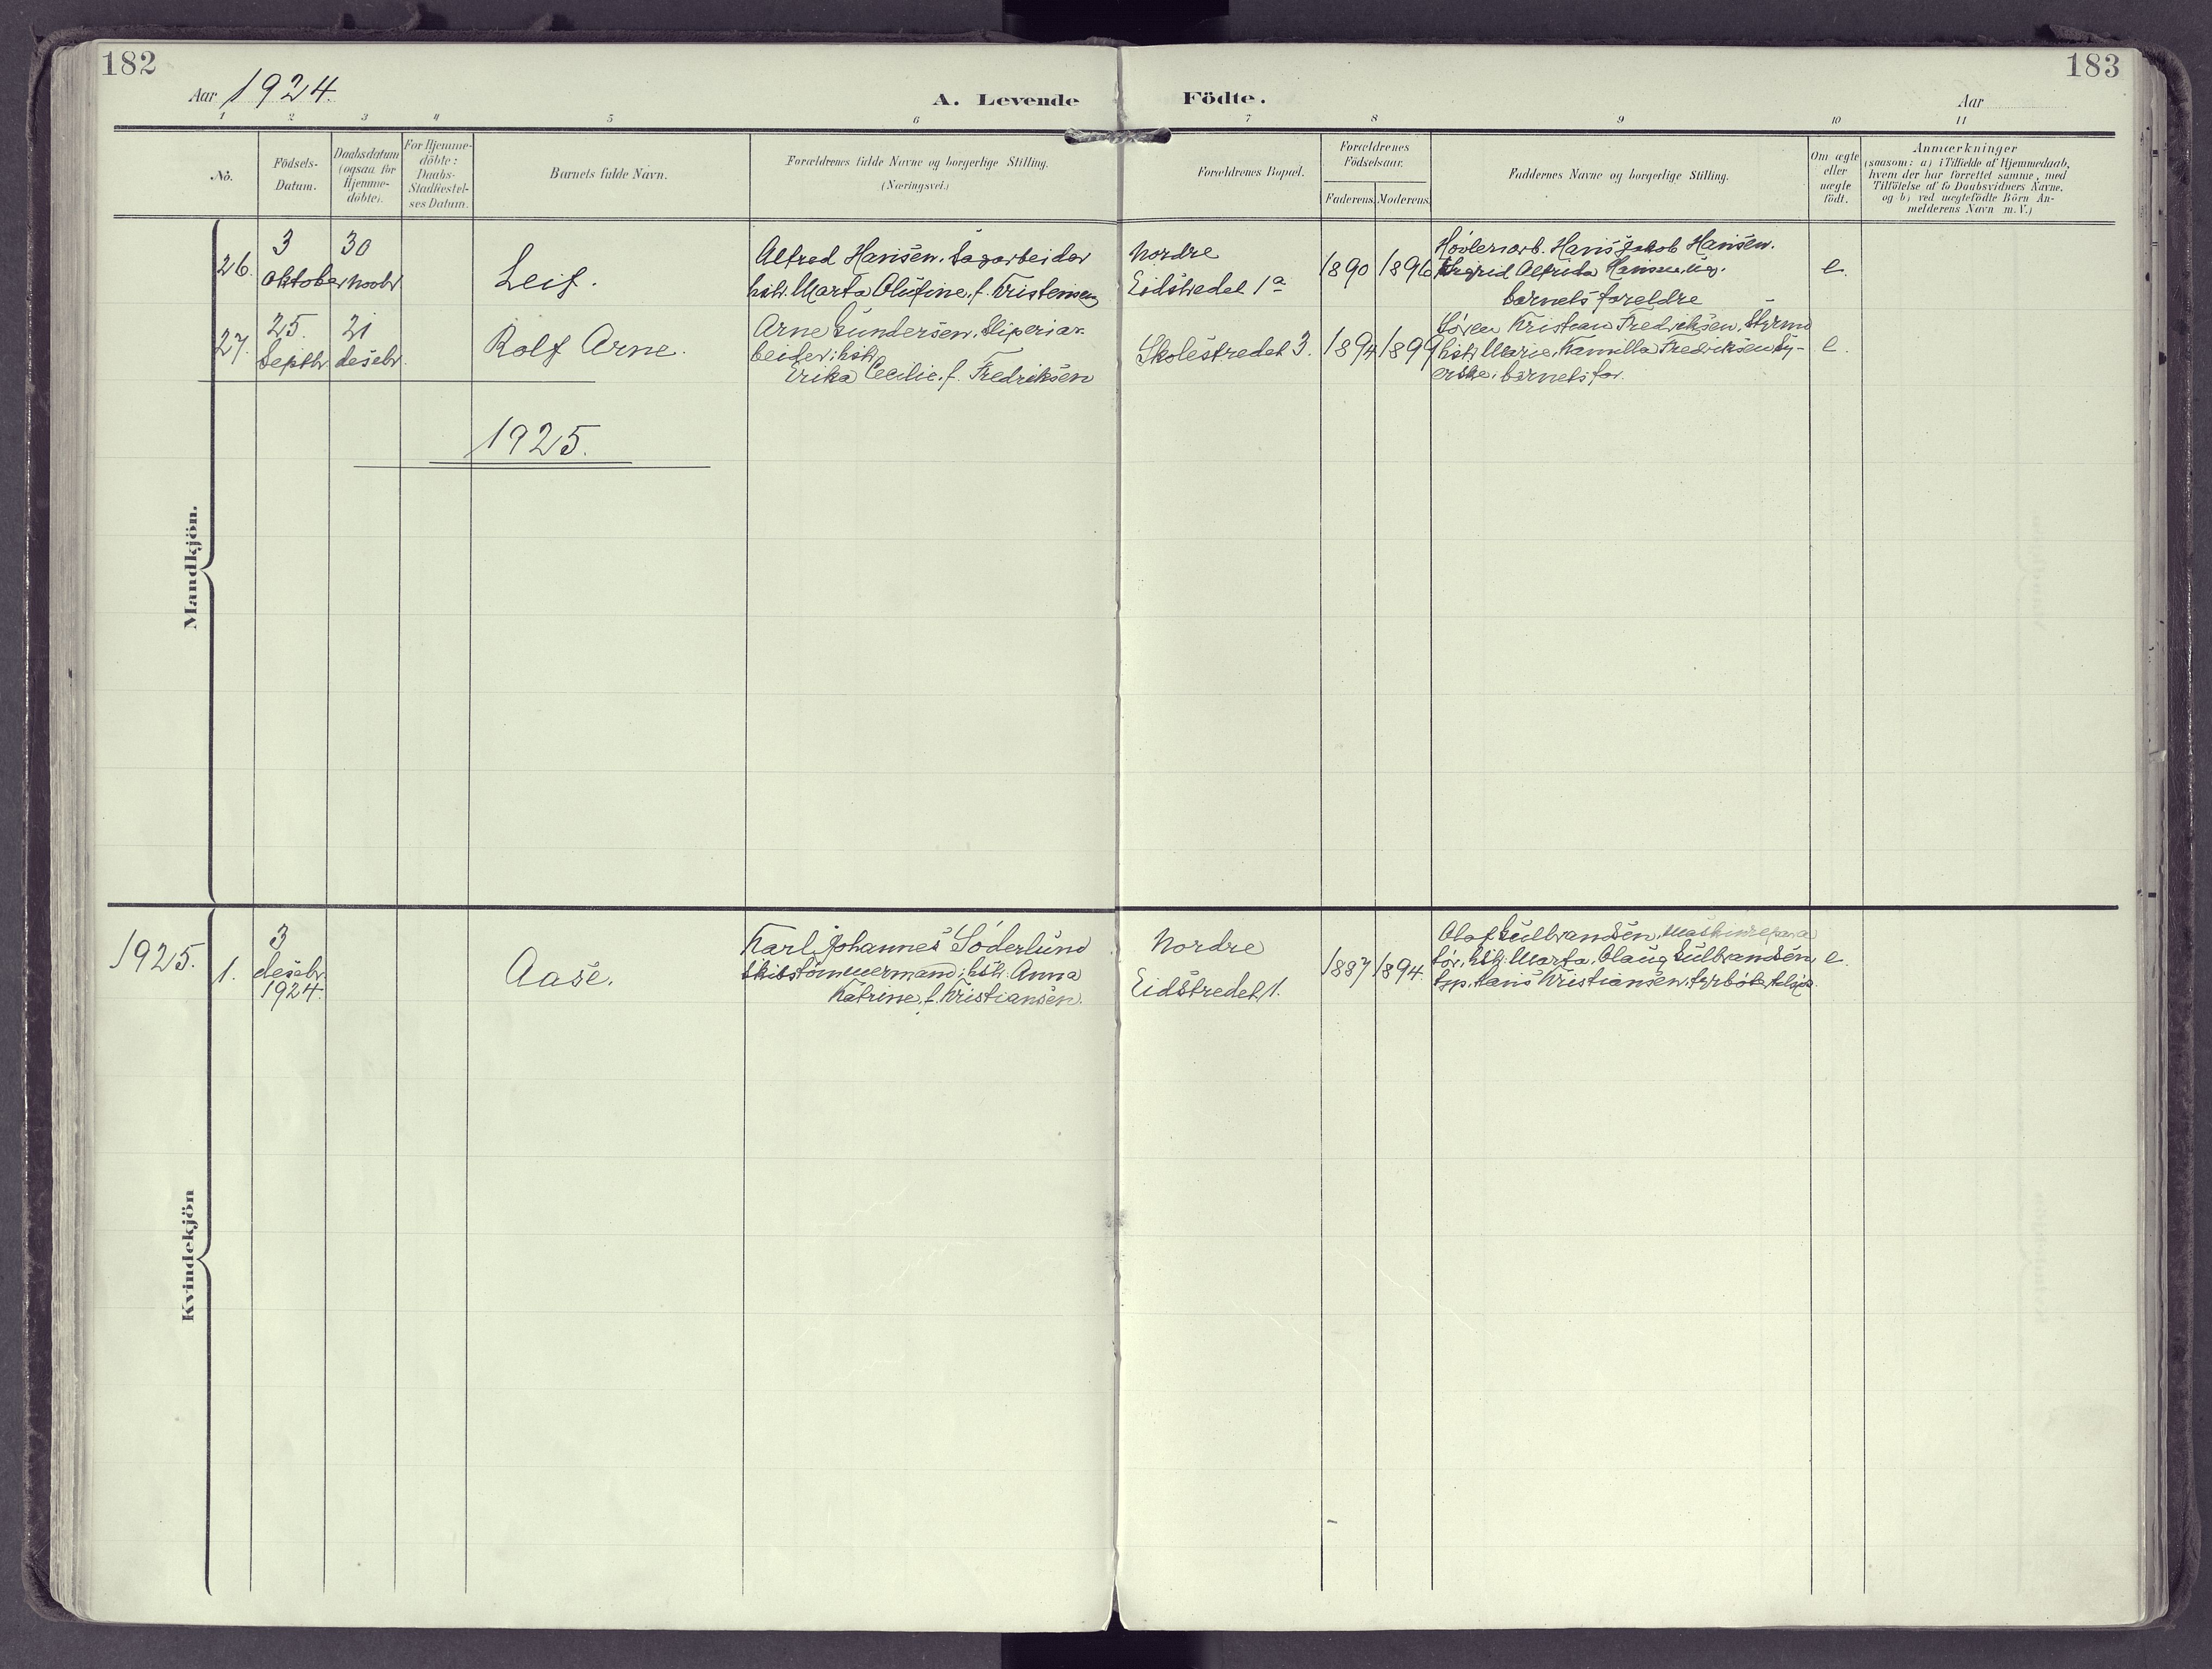 182
183
Aar 1924.
A. Levende Födte.
Aar
1 2 3 4 5 6 7 8 9 10 11
No.
Födsels-
Datum.
Daabsdatum
(ogsaa for
Hjemme-
döbte).
For Hjemme-
döbte:
Daabs-
Stadfæstel-
ses Datum.
Barnets fulde Navn.
Forældrenes fulde Navne og borgerlige Stilling.
(Næringsvei.)
Forældrenes Bopæl.
Forældrenes
Födselsaar.
Faderens. Moderens.
Faddernes Navne og borgerlige Stilling.
Om ægte
eller
uægte
födt.
Anmærkninger
(saasom: a) i Tilfælde af Hjemmedaab,
hvem der har forrettet samme, med
Tilföielse af to Daabsvidners Navne,
og b) ved uægtefödte Börn An-
melderens Navn m. V.)
Mandkjön.
26.
3
oktober
30
novbr
Leif.
Alfred Hansen. Sagarbeider
hstr. Marta Olufine, f. Kristensen
Nordre
Eidstredet 1a
1890 1896
Høvleriarb. Hans Jakob Hansen.
Ingrid Alfrida Hansen
barnets foreldre
e.
27.
25.
Septbr.
21
desebr.
Rolf Arne.
Arne Gundersen. Sliperiar-
beider; hstr.
Erika Cecilie, f. Fredriksen
Skolestredet 3.
1894 1899
Søren Kristian Fredriksen, Styrm
hstr. Marie, Kamilla Fredriksen Sy-
erske. barnets for.
e.
1925.
Kvindekjön
1925.
1.
3
desebr.
1924.
Aase.
Karl Johannes Söderlund
skibstømmermand; hstr. Anna
Katrine, f. Kristiansen.
Nordre
Eidstredet 1.
1887 1894.
Olaf Gulbrandsen, maskinrepara
tør, hstr. Marta, Olaug Gulbrandsen,
Hans Kristiansen. fyrbøter
e.